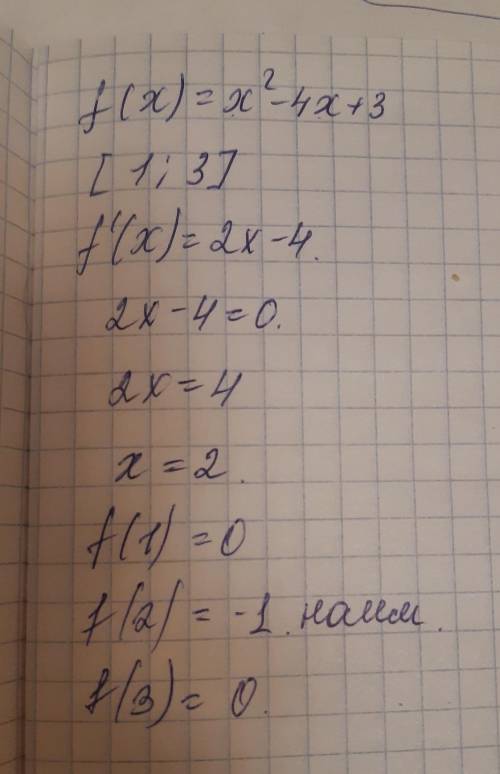 f(x)=x²-4x+3
[1; 3]
f'(x)=2x-4.
2x-4=0.
2x=4
x=2.
f(1)=0
f(2)=-1. наим.
f(3)=0.